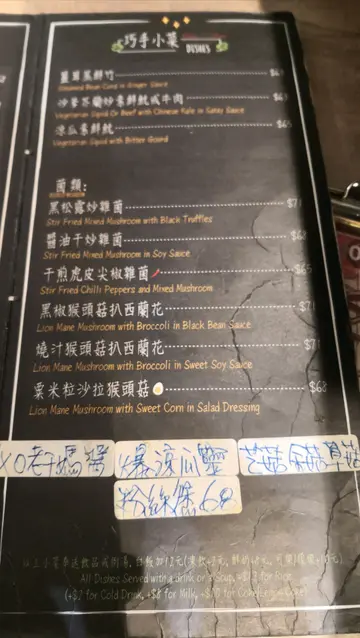 巧手小菜
DISHES
薑茸蒸鮮竹
Steamed Bean Curd in Ginger Sauce
沙爹芥蘭炒素鮮魷或牛肉
Vegetarian Squid Or Beef with Chinese Kale in Satay Sauce
涼瓜素鮮魷 $65
Vegetarian Squid with Bitter Gourd
菌類:
黑松露炒雜菌
Stir Fried Mixed Mushroom with Black Truffles
醬油干炒雜菌 $68
Stir Fried Mixed Mushroom in Soy Sauce
干煎虎皮尖椒雜菌 $65
Stir Fried Chilli Peppers and Mixed Mushroom
黑椒猴頭菇扒西蘭花
Lion Mane Mushroom with Broccoli in Black Bean Sauce
燒汁猴頭菇扒西蘭花
Lion Mane Mushroom with Broccoli in Sweet Soy Sauce
粟米粒沙拉猴頭菇 $68
Lion Mane Mushroom with Sweet Corn in Salad Dressing
XO老干媽醬 爆涼瓜
粉絲煲 68
以上小菜奉送飲品或例湯, 白飯加12元
All Dishes Served with a drink or a Soup, +$12 for Rice
(+$2 for Cold Drink, +$8 for Milk,